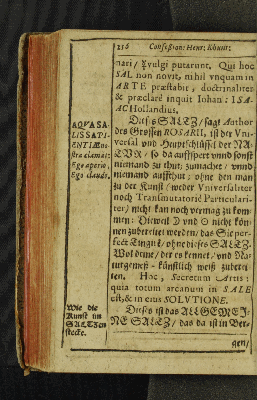 216 Confession: Henr: Khunr:
nari/ Evulgi putarunt. Qui hoc
SAL non novit, nihil vnquam in
ARTE præstabit, doctrinaliter
& præclarè inquit Iohan: ISA-
AC Hollandius.
Dises SALTZ/ sagt Author
des Grossen ROSARII, ist der Vni-
versal vnd Hauptschlüssel der NA-
TVR/ so da auffsperrt vnnd sonst
niemand zu thut; zumachet/ vnnd
niemand auffthut; ohne den man
zu der Kunst (weder Vniversaliter
noch Transmutatoriè Particulari-
ter) nicht kan noch vermag zu kom-
men: Dieweil ☽ vnd ☉ nicht kön-
nen zubereitet werden/ das Sie per-
fectè Tingirt/ ohne dieses SALTZ.
Wol deme/ der es kennet/ vnd Na-
turgemeß-künstlich weiß zuberei-
ten. Hoc, Secretum Artis:
quia totum arcanum in SALE
est, & in eius SOLVTIONE.
Dises ist das ALLGEMEI-
NE SALTZ/ das da ist in Ber-
gen/
AQVA SA-
LIS SAPI-
ENTIÆ no-
stra clamat:
Ego aperio,
Ego claudo.
Wie die
Kunst im
SALTZ en
stecke.